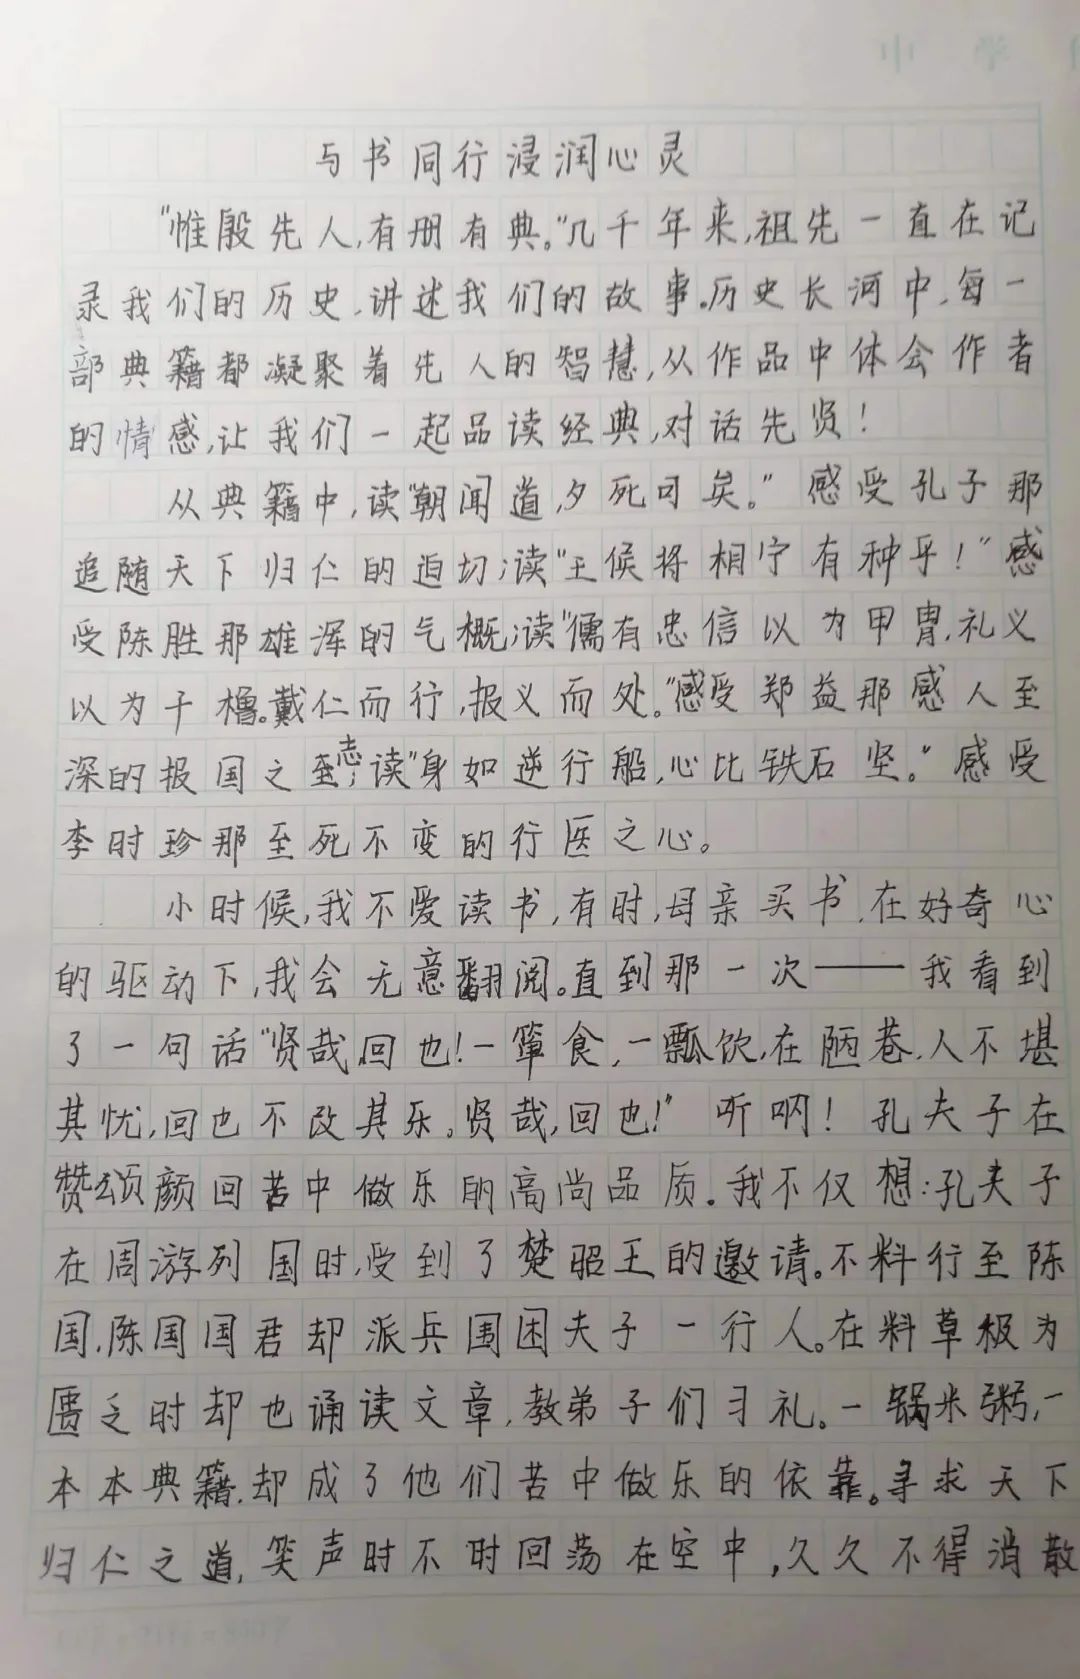 与书同行浸润心灵
"惟殷先人,有册有典。"几千年来,祖先一直在记
录我们的历史,讲述我们的故事.历史长河中,每一
部典籍都凝聚着先人的智慧,从作品中体会作者
的情感,让我们一起品读经典,对话先贤!
从典籍中,读"朝闻道,夕死可矣。"感受孔子那
追随天下归仁的迫切;读"王候将相宁有种乎!"感
受陈胜那雄浑的气概;读"儒有忠信以为甲胄,礼义
以为干橹。戴仁而行,报义而处。"感受郑益那感人至
深的报国之志;读"身如逆行船,心比铁石坚。"感受
李时珍那至死不变的行医之心。
小时候,我不爱读书,有时,母亲买书,在好奇心
的驱动下,我会无意翻阅。直到那一次——我看到
了一句话"贤哉,回也!一箪食,一瓢饮,在陋巷,人不堪
其忧,回也不改其乐。贤哉,回也!"听呐!孔夫子在
赞颂颜回苦中做乐的高尚品质.我不仅想:孔夫子
在周游列国时,受到了楚昭王的邀请。不料行至陈
国,陈国国君却派兵围困夫子一行人。在料草极为
匮乏时却也诵读文章,教弟子们习礼。一锅米粥,一
本本典籍,却成了他们苦中做乐的依靠。寻求天下
归仁之道,笑声时不时回荡在空中,久久不得消散